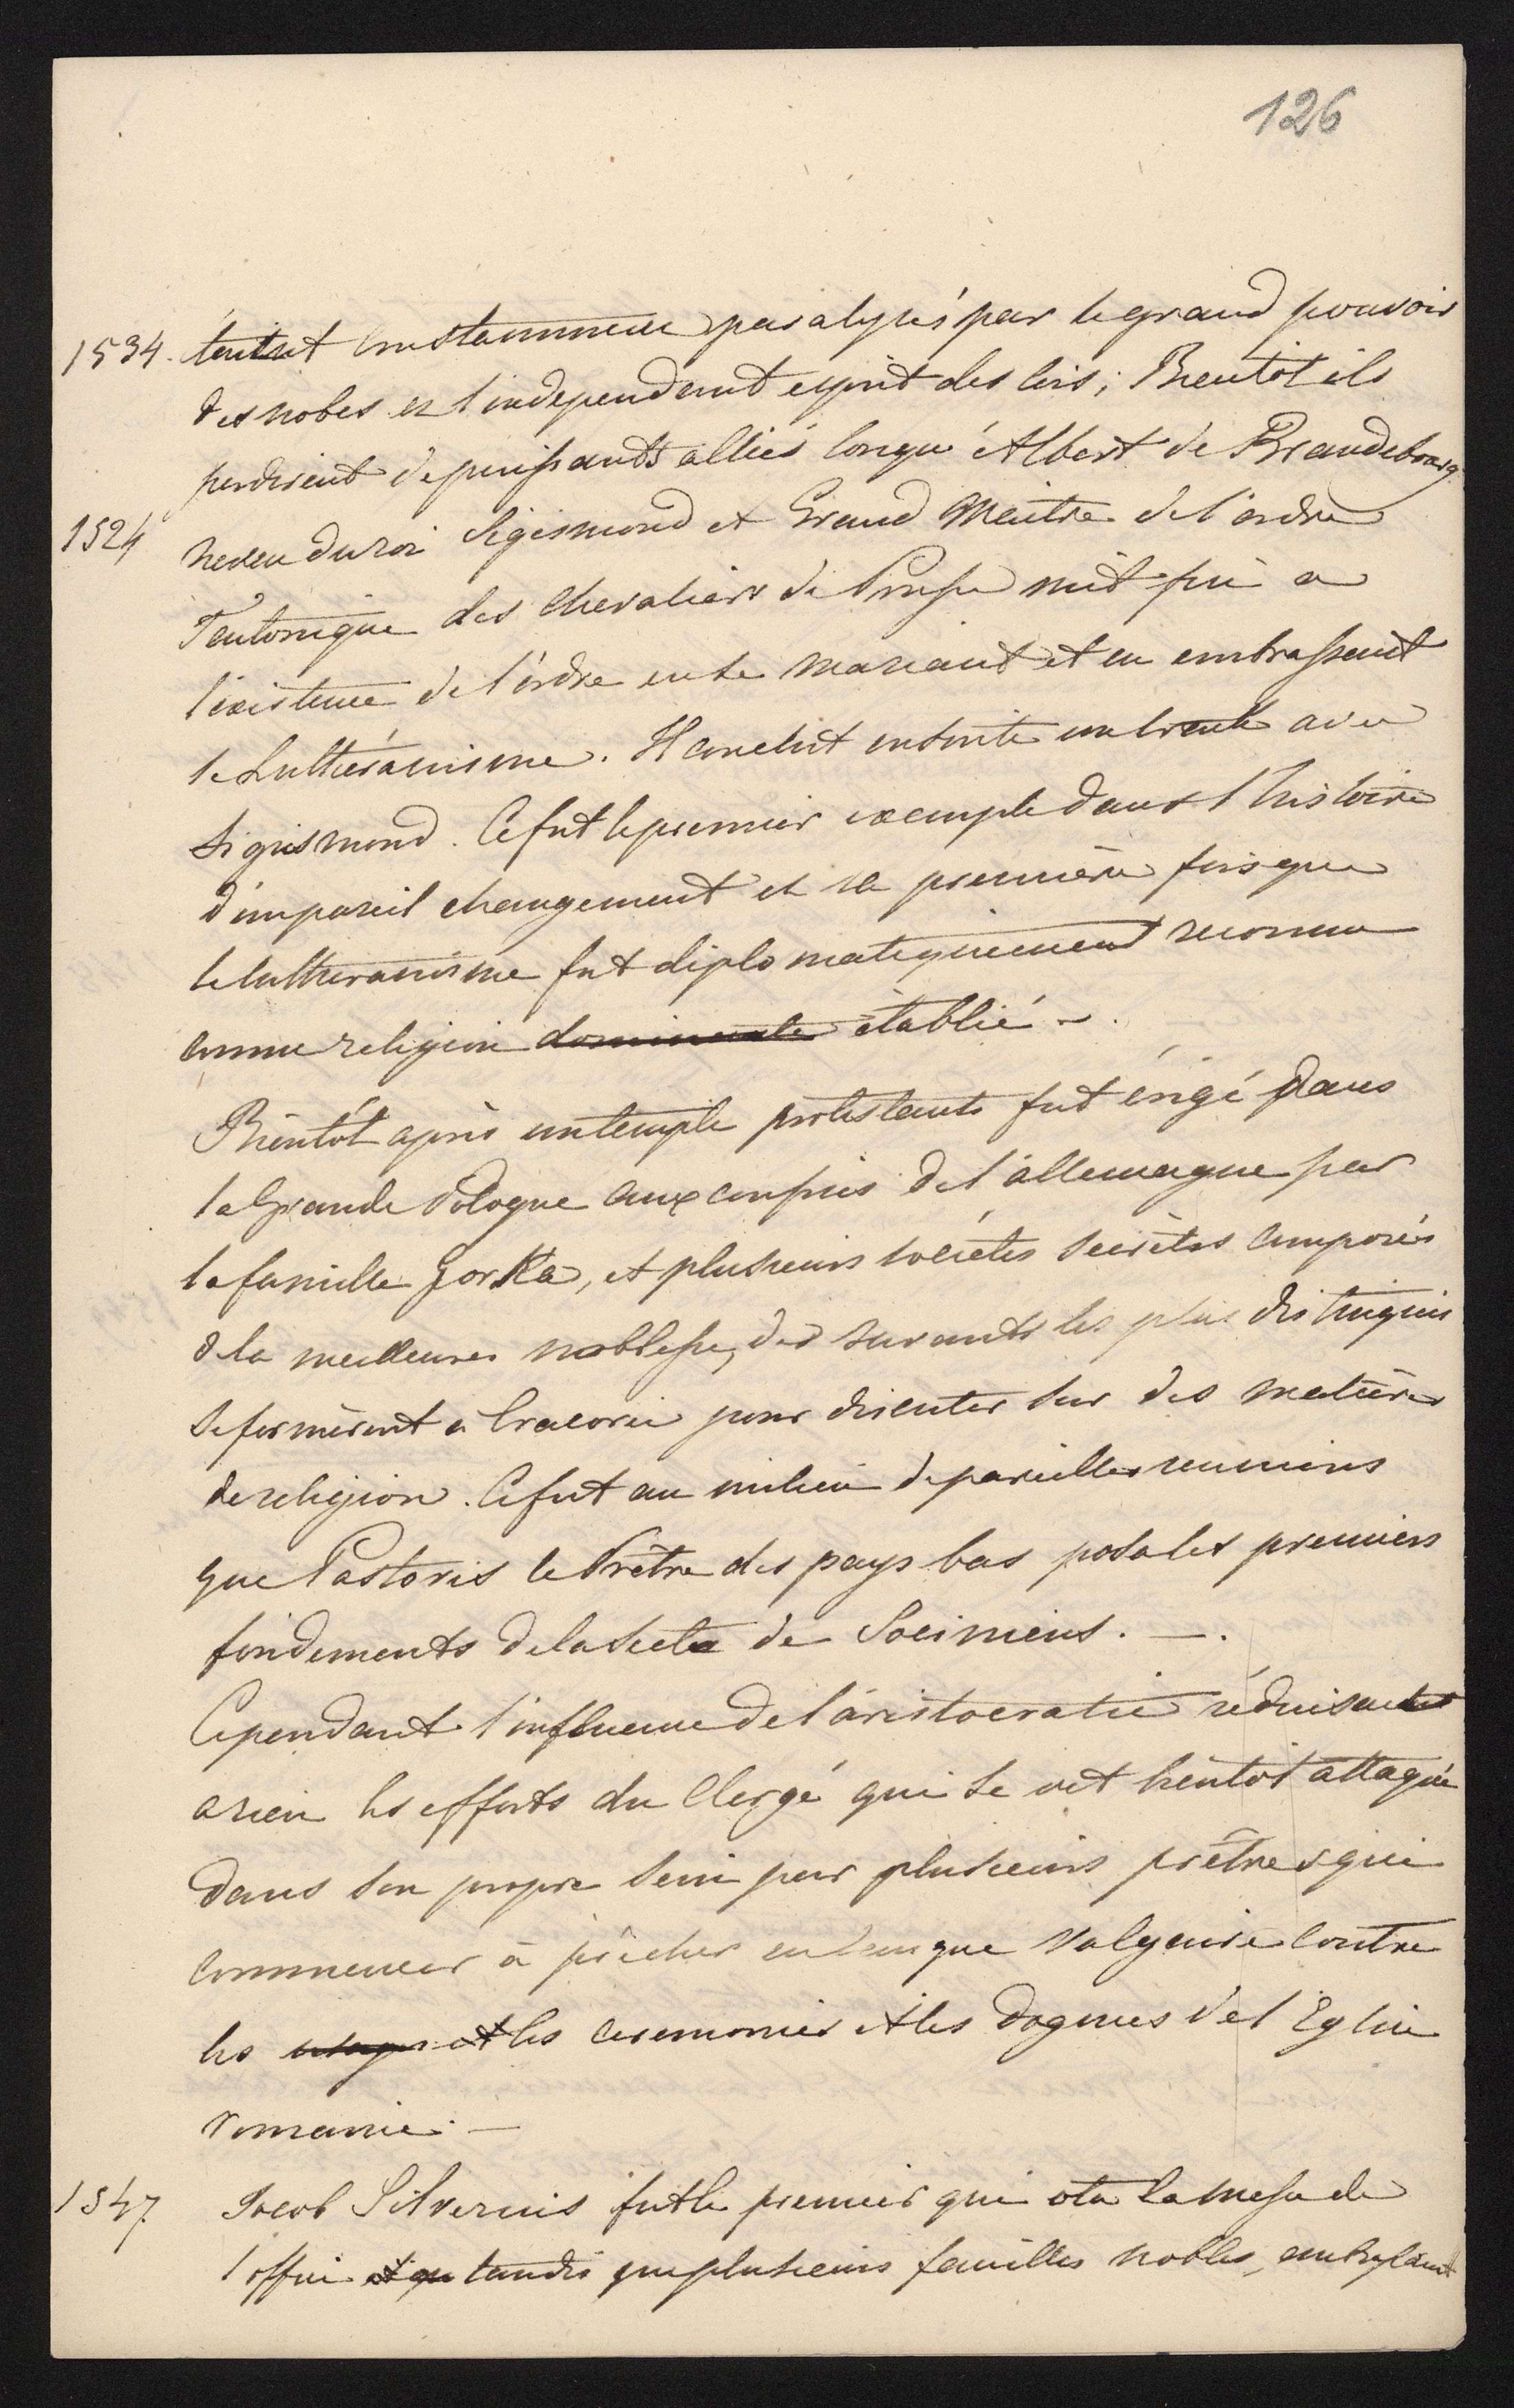 126
1534. constamment paralysés par le grand pouvoir
des nobes et l'independant esprit des lois; Bientôt ils
perdirent de puissants alliés lorsqu'Albert de Brandebourg
1524 neveu du roi Sigismond et Grand Maitre de l'ordre
Teutonique des chevaliers de Prusse mit fin a
l'existence de l'ordre en se mariant et en embrassant
le Luthéranisme. Il conclut ensuite un traité avec
Sigismond. Ce fut le premier exemple dans l'histoire
d'un pareil changement et la première fois que
le lutheranisme fut diplomatiquement reconnu
comme religion dominante établie -.
Bientôt après un temple protestants fut érigé dans
la Grande Pologne aux confins de l'allemagne par
la famille Gorka, et plusieurs sociétés secrètes composés
d la meilleures noblesse, des savants les plus distingués
se formèrent a Cracovie pour discuter sur des matières
de religion. Ce fut au milieu de pareilles reunions
que Pastoris le Prêtre des pays bas posa les premiers
fondements de la secte de Sociniens. —.
Cependant l'influence de l'aristocratie réduisait
a rien les efforts du Clergé qui se vit bientôt attaqué
dans son propre sein par plusieurs prêtres qui
commencer à prêcher en langue vulgaire contre
les usages et les ceremonies et les dogmes de l'Eglise
romaine. —
1547 Jacob Silverius fut le premier qui ota la messe de
l'office et que tandis que plusieurs familles nobles, embrassant